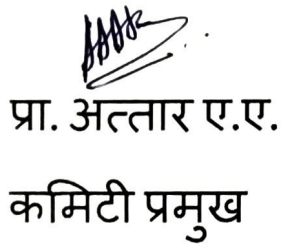 प्रा. अत्तार ए.ए.
कमिटी प्रमुख